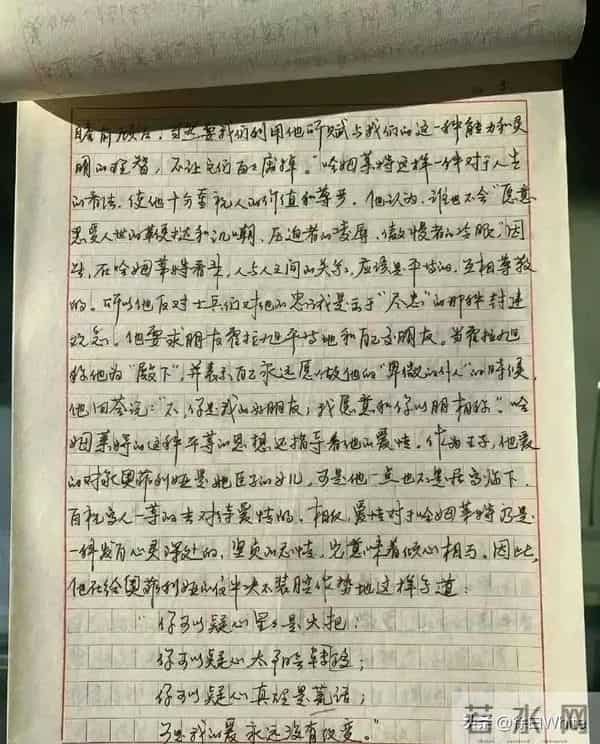 瞻前顾后,当然要我们利用他所赋与我们的这一种能力和灵
明的理智,不让它们白白废掉。"哈姆莱特这样一种对于人生
的看法,使他十分重视人的价值和尊严。他认为,谁也不会"愿意
忍受人世的鞭挞和讥嘲、压迫者的凌辱、傲慢者的冷眼",因
此,在哈姆莱特看来,人与人之间的关系,应该是平等的,互相尊敬
的。所以他反对士兵们对他的忠诚是出于"尽忠"的那种封建
观念。他要求朋友霍拉旭平等地和自己交朋友。当霍拉旭
称他为"殿下",并表示自己永远愿做他的"卑微的仆人"的时候,
他回答说:"不,你是我的好朋友;我愿意和你以朋相称"。哈
姆莱特的这种平等的思想还指导着他的爱情。作为王子,他爱
的对象奥菲利娅是她臣子的女儿,可是他一点也不是居高临下,
自视高人一等的去对待爱情的。相反,爱情对于哈姆莱特乃是
一种发自心灵深处的,坚贞的感情,它意味着倾心相与。因此,
他在给奥菲利娅的信中决不装腔作势地这样写道:
"你可以疑心星星是火把;
你可以疑心太阳会转移;
你可以疑心真理是谎话;
可是我的爱永远没有改变。"
若水网
头条 @每日White